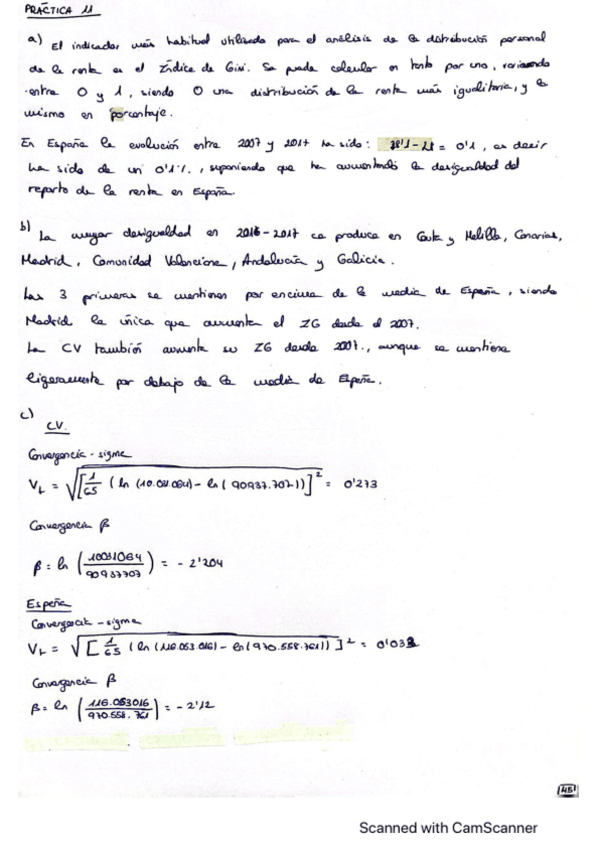 PRÁCTICA 11
a) El indicador más habitual utilizado para el análisis de la distribución personal
de la renta es el Índice de Gini. Se puede calcular en tanto por uno, variando
entre 0 y 1, siendo 0 una distribución de la renta más igualitaria, y lo
mismo en porcentaje.
En España la evolución entre 2007 y 2017 ha sido: = 0'1, es decir
ha sido de un 0'1%, suponiendo que ha aumentado la desigualdad del
reparto de la renta en España.
b) La mayor desigualdad en 2016-2017 se produce en Ceuta y Melilla, Canarias,
Madrid, Comunidad Valenciana, Andalucía y Galicia.
Las 3 primeras se mantienen por encima de la media de España, siendo
Madrid la única que aumenta el IG desde el 2007.
La CV también aumenta su IG desde 2007., aunque se mantiene
ligeramente por debajo de la media de España.
c)
CV.
Convergencia - sigma
VL = √[1/65 (ln ( ) - ln (90937.707))]² = 0'273
Convergencia β
β = ln (10031064/90937707) = - 2'204
España
Convergencia - sigma
VL = √[1/65 (ln (116.053.016) - ln (970.558.761))]² =
Convergencia β
β = ln (116.053016/970.558.761) = - 2'12
Scanned with CamScanner